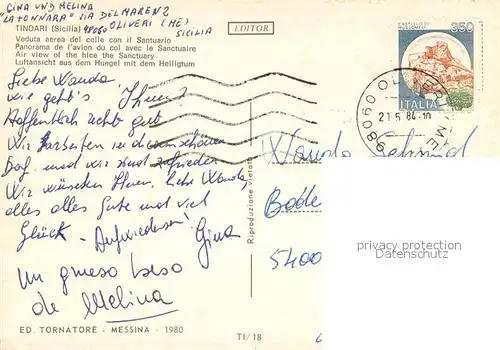 GINA UND MELINA
"LA TONNARA" VIA DEL MAREN 2
98060 OLIVERI (ME)
SICILIA
EDITOR
TINDARI (Sicilia)
Veduta aerea del colle con il Santuario
Panorama de l'avion du col avec le Sanctuaire
Air view of the hice the Sanctuary
Luftansicht aus dem Huegel mit dem Heiligtum
350
ITALIA
98060 OLIVERI (ME)
21.5.84-10
Liebe Wanda
wie geht's Ihnen?
Hoffentlich recht gut
Wir arbeiten in diesem schönen
Dorf und wir sind zufrieden
Wir wünschen Ihnen, liebe Wanda,
alles alles Gute und viel
Glück - Aufwiedersen! Gina
Un grueso beso
de Melina
Riproduzione vietata
Wanda
Bode
5400
privacy protection
Datenschutz
ED. TORNATORE - MESSINA - 1980
TI/18